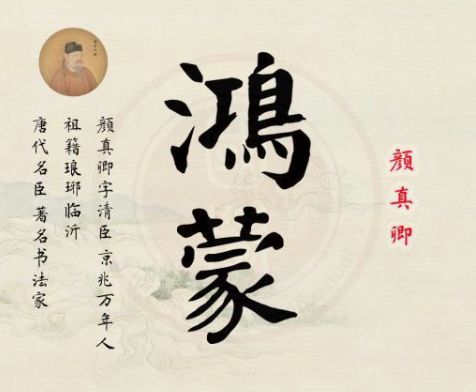 鴻蒙
顔真卿
顔真卿字清臣 京兆万年人
祖籍琅琊临沂
唐代名臣 著名书法家